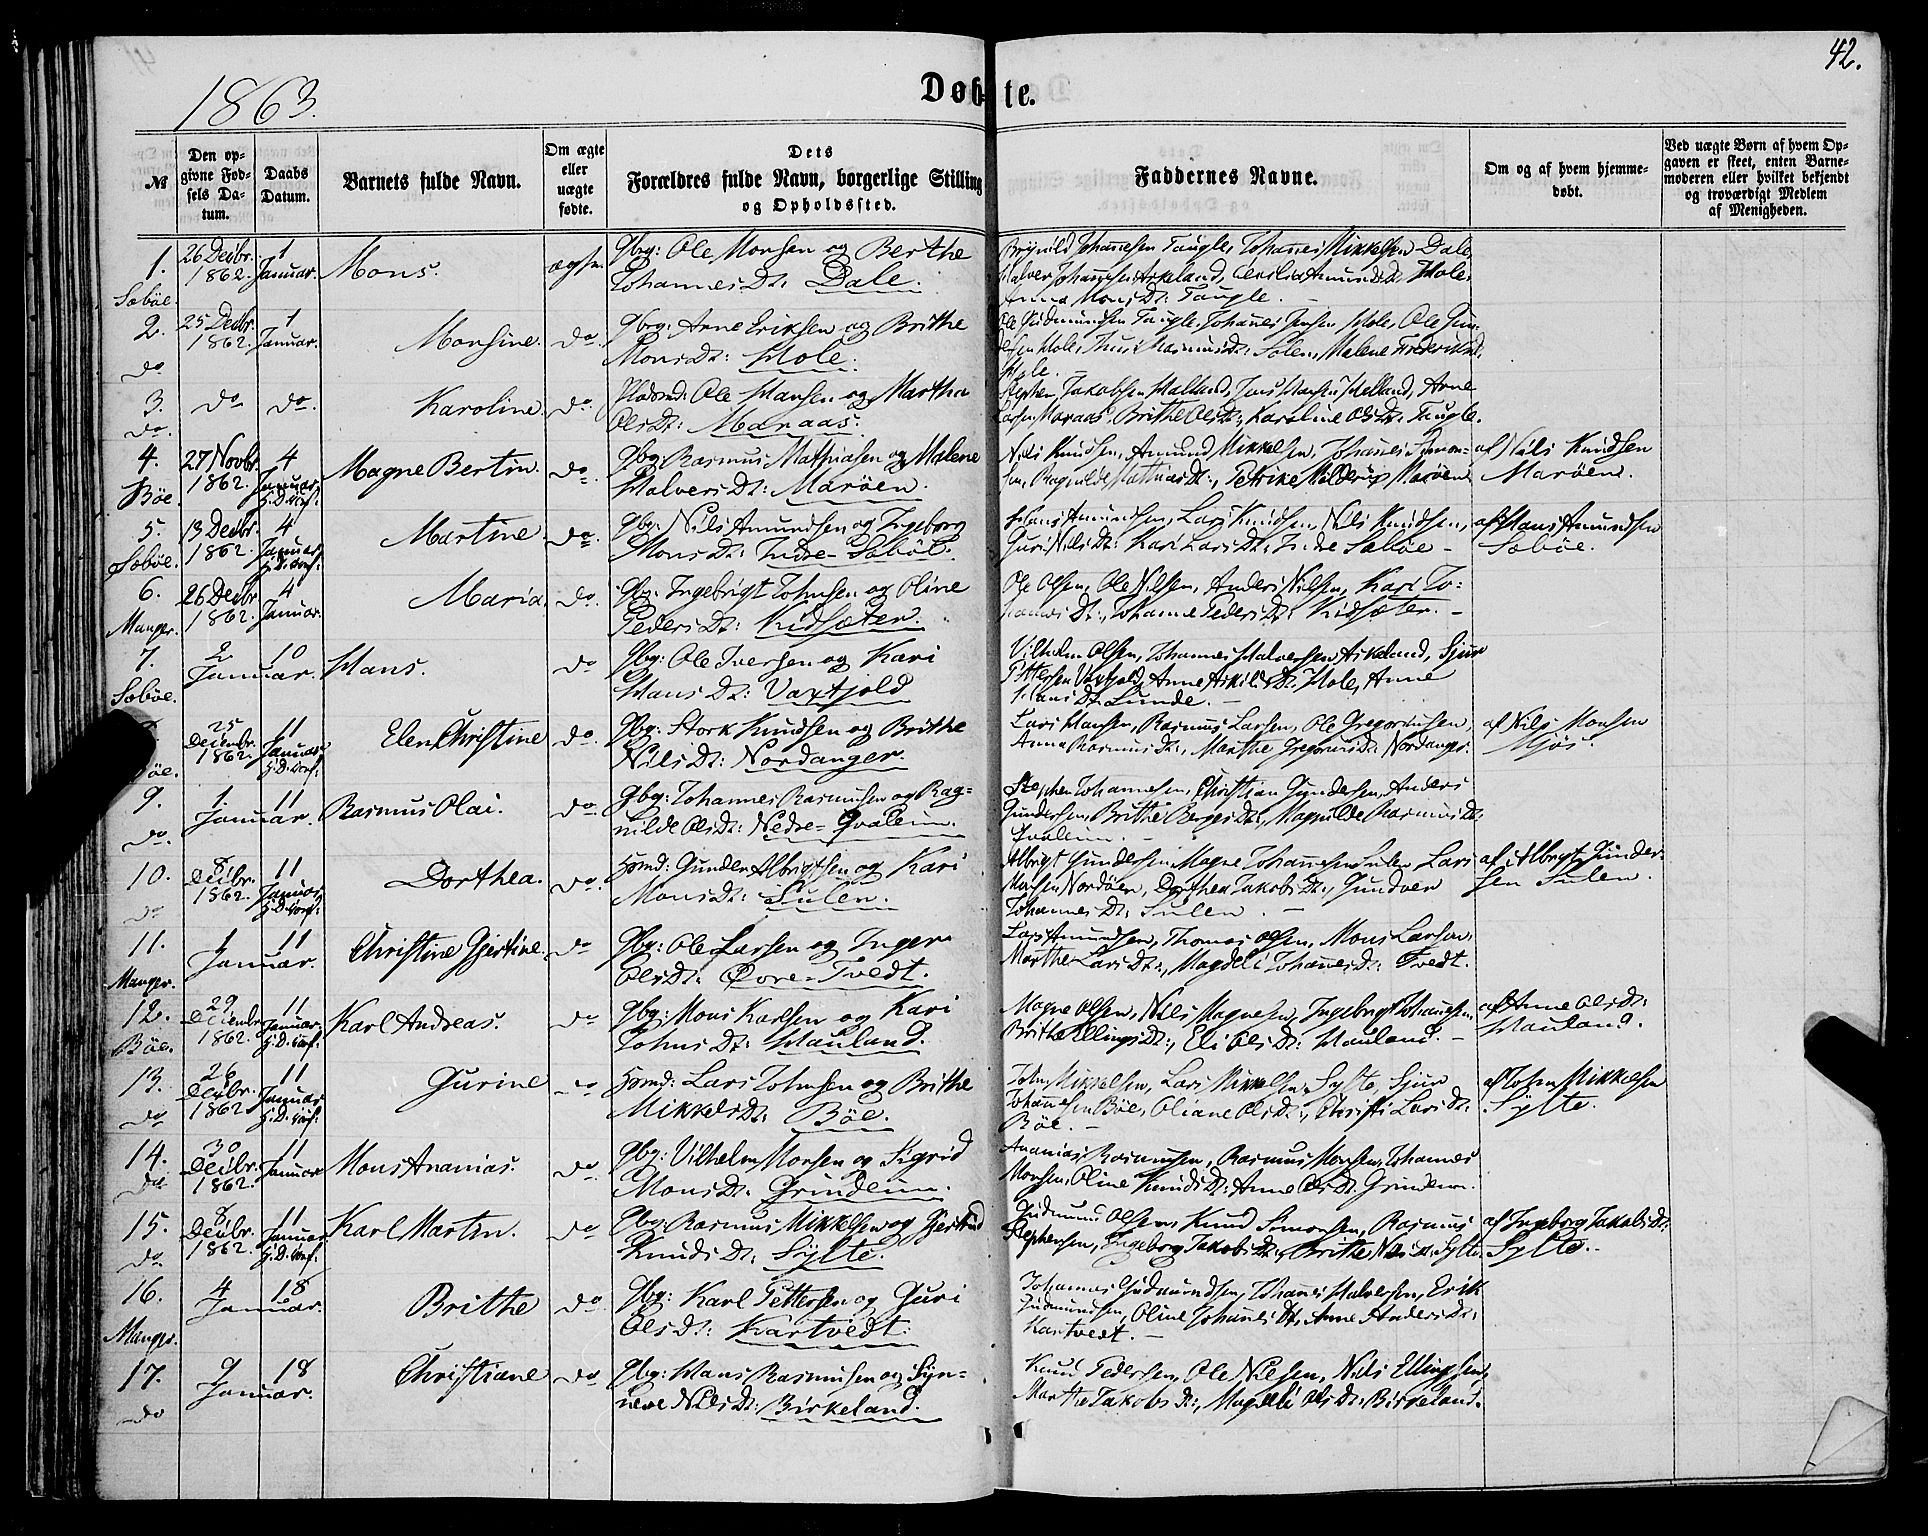 42.
1863.
Døbte.
№
Den opgivne Fødsels Datum.
Daabs Datum.
Barnets fulde Navn.
Om ægte eller uægte fødte.
Dets Forældres fulde Navn, borgerlige Stilling og Opholdssted.
Faddernes Navne.
Om og af hvem hjemmedøbt.
Ved uægte Børn af hvem Opgaven er skeet, enten Barnemoderen eller hvilket bekjendt og troværdigt Medlem af Menigheden.
1. Sæbøe. 26 Decbr. 1862. 1 Januar. Mons. Gbg: Ole Monsen og Berthe
Johannes Dt: Dale.
Johannesen Taugle, Johannes Mikkelsen Dale,
Halver Johannesen Askeland, Hole,
Anna Mons Dt: Taugle.
2. do 25 Decbr. 1862. 1 Januar. Monsine. do. Gbg: Arne Eriksen og Brithe
Mons Dt: Hole.
Ole Gudmundsen Taugle, Johannes Jensen Hole, Ole
Hole.
3. do. do do. Karoline. do. Ole Hansen og Martha
Ols Dt: Maraas.
Stephen Jakobsen Helland, Jens Hansen Helland, Arne
Larsen Maraas, Brithe Ols Dt:, Karoline Ols Dt: Taugle.
4. Bøe. 27 Novbr. 1862. 4 Januar. Magne Bertin. do. Gbg: Rasmus Mathiasen og Malene
Halvers Dt: Marøen.
Nils Knudsen, Amund Mikkelsen, Johannes Simonsen, Ragnilde Mathias Dt:, Petrike Marøen
af Nils Knudsen
Marøen.
5. Sæbøe. 13 Decbr. 1862. 4 Januar. Martine. do. Gbg: Nils Amundsen og Ingeborg
Mons Dt: Indre-Sæbøe.
Hans Amundsen, Lars Knudsen, Nils Knudsen,
Guri Nils Dt: Kari Lars Dt: Indre Sæbøe
af Hans Amundsen
Sæbøe.
6. Manger. 26 Decbr 1862. 4 Januar. Maria. do. Gbg: Ingebrigt Johnsen og Oline
Peders Dt: Kidsæter.
Ole Olsen, Ole Nilsen, Anders Nilsen, Kari Jo-
hannes Dt., Johanne Peders Dt: Kidsæter.
7. Sæbøe. 2 Januar. 10 Hans. do Gbg: Ole Iversen og Kari
Hans Dt: Vaxtjold
Vilhelm Olsen, Johannes Halversen Askeland, Sjur
Pettersen Vaxtjold, Anne Hole, Anne
Hans Dt: Lunde.
25 Decembr. 1862. 11 Januar Elen Christine do Gbg: Stork Knudsen og Brithe
Nils Dt: Nordanger.
Lars Hansen, Rasmus Larsen, Ole Gregoriusen,
Anna Rasmus Dt:, Marthe Gregorius Dt: Nordanger.
af Nils Monsen
Mjøs.
9. do. 1. Januar 11 Rasmus Olai. do Gbg: Johannes Rasmusen og Rag-
nilde Ols Dt: Nedre-Qvalem.
Stephen Johannesen, Christian Gundersen, Anders
Gundersen, Brithe Borges Dt:, Magnilde Rasmus Dt:
Qvalem.
10. do 8 Decbr. 1862. 11 Januar. Dorthea. do. Gunder Albrigtsen og Kari
Mons Dt: Sulen.
Albrigt Gundersen Magne Johannesen Sulen Lars
Monsen Nordøen, Dorthea Jakobs Dt:, Gundvor
Johannes Dt: Sulen.
af Albrigt Gunder-
sen Sulen.
11. Manger. 1 Januar. 11 Christine Gjertine. do Gbg: Ole Larsen og Inger
Ols Dt: Øvre-Tvedt.
Lars Amundsen, Thomas Olsen, Mons Larsen,
Marthe Lars Dt:, Magdeli Johannes Dt: Tvedt.
12. Bøe. 29 Decembr 1862. 11 Januar Karl Andreas. do Gbg: Mons Karlsen og Kari
Johns Dt: Hauland.
Magne Olsen, Nils Magnesen, Ingebrigt Johannesen,
Brithe Ellings Dt:, Eli Ols Dt: Hauland.
af Anne Ols Dt:
Hauland.
13. do 26 Decbr. 1862 11 Januar Gurine do Lars Johnsen og Brithe
Mikkels Dt: Bøe.
John Mikkelsen, Lars Mikkelsen Sylte, Sjur
Johannesen Bøe, Oliane Ols Dt:, Christi Lars Dt:
Bøe.
af John Mikkelsen
Sylte.
14. do. 30 Decbr. 1862. 11 Januar Mons Ananias. do Gbg: Vilhelm Monsen og Sigrid
Mons Dt: Grindeim.
Ananias Rasmusen, Rasmus Monsen, Johannes
Monsen, Oline Knuds Dt: Anne Ols Dt: Grindem.
15. do 8 Decbr. 1862. 11 Januar Karl Martin. do Gbg: Rasmus Mikkelsen og Gjertrud
Knuds Dt: Sylte.
Gudmund Olsen, Knud Simonsen, Rasmus
Stephensen, Ingeborg Jakobs Dt:, Brithe Nils Dt: Sylte
af Ingeborg Jakobs Dt:
Sylte.
16. Manger. 4 Januar. 18 Brithe do Gbg: Karl Pettersen og Guri
Ols Dt: Kartvedt.
Johannes Gudmundsen, Johannes Halversen, Erik
Gudmundsen, Oline Johannes Dt, Anne Anders Dt:
Kartvedt.
17. do 9 Januar. 18 Christiane do Gbg: Hans Rasmusen og Syn-
neve Nils Dt: Birkeland.
Knud Pedersen, Ole Nilsen, Nils Ellingsen,
Marthe Jakobs Dt:, Magdeli Ols Dt: Birkeland.